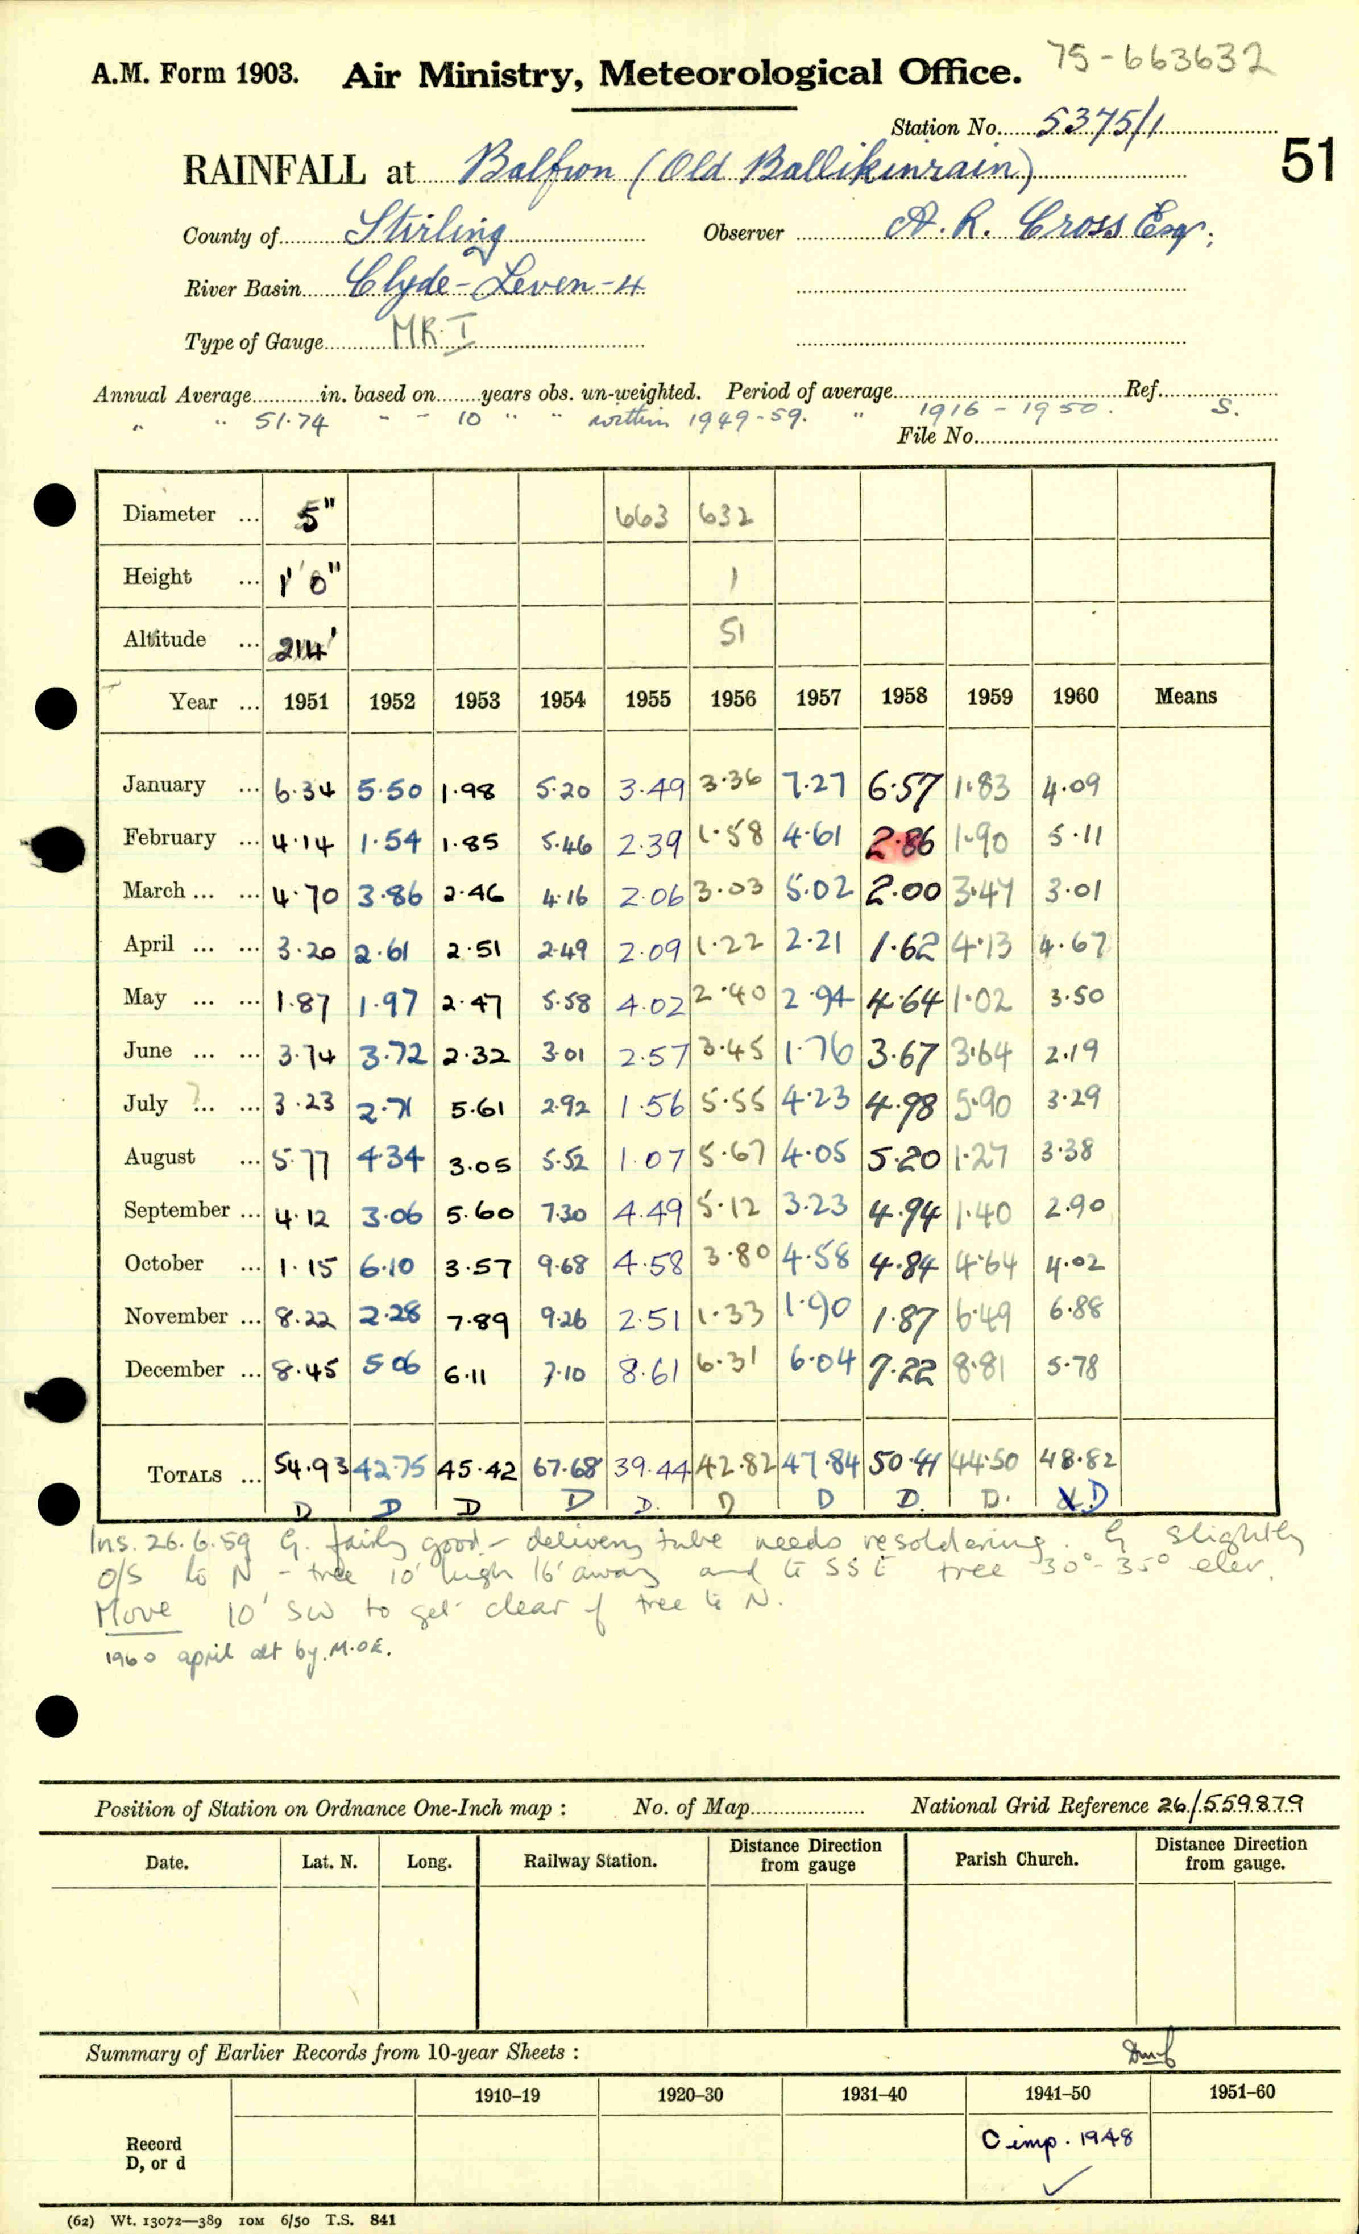 75-663632
A.M. Form 1903. Air Ministry, Meteorological Office.
Station No. 5375/1
51
RAINFALL at Balfron (Old Ballikinrain)
County of Stirling Observer A. R. Cross Esq;
River Basin Clyde-Leven-4
Type of Gauge MR I
Annual Average in. based on years obs. un-weighted. Period of average Ref.
" " 51.74 - - 10 " " within 1949-59. " 1916-1950. S.
File No.
Diameter ... 5" 663 632
Height ... 1' 0" 1
Altitude ... 214' 51
Year ... 1951 1952 1953 1954 1955 1956 1957 1958 1959 1960 Means
January ... 6.34 5.50 1.98 5.20 3.49 3.36 7.27 6.57 1.83 4.09
February ... 4.14 1.54 1.85 5.46 2.39 1.58 4.61 2.86 1.90 5.11
March ... ... 4.70 3.86 2.46 4.16 2.06 3.03 5.02 2.00 3.47 3.01
April ... ... 3.20 2.61 2.51 2.49 2.09 1.22 2.21 1.62 4.13 4.67
May ... ... 1.87 1.97 2.47 5.58 4.02 2.40 2.94 4.64 1.02 3.50
June ... ... 3.74 3.72 2.32 3.01 2.57 3.45 1.76 3.67 3.64 2.19
July ... ... 3.23 2.71 5.61 2.92 1.56 5.55 4.23 4.98 5.90 3.29
August ... 5.77 4.34 3.05 5.52 1.07 5.67 4.05 5.20 1.27 3.38
September ... 4.12 3.06 5.60 7.30 4.49 5.12 3.23 4.94 1.40 2.90
October ... 1.15 6.10 3.57 9.68 4.58 3.80 4.58 4.84 4.64 4.02
November ... 8.22 2.28 7.89 9.26 2.51 1.33 1.90 1.87 6.49 6.88
December ... 8.45 5.06 6.11 7.10 8.61 6.31 6.04 7.22 8.81 5.78
TOTALS ... 54.93 42.75 45.42 67.68 39.44 42.82 47.84 50.41 44.50 48.82
D D D D D. D D D. D. D
Ins. 26.6.59 G. fairly good - delivery tube needs resoldering. G slightly
o/s to N - tree 10' high 16' away and to SSE tree 30°-35° elev.
Move 10' SW to get clear of tree to N.
1960 april alt by. M.O.E.
Position of Station on Ordnance One-Inch map : No. of Map National Grid Reference 26/559879
Date. Lat. N. Long. Railway Station. Distance Direction from gauge Parish Church. Distance Direction from gauge.
Summary of Earlier Records from 10-year Sheets :
1910-19 1920-30 1931-40 1941-50 1951-60
Record D, or d C imp. 1948
(62) Wt. 13072—389 10M 6/50 T.S. 841